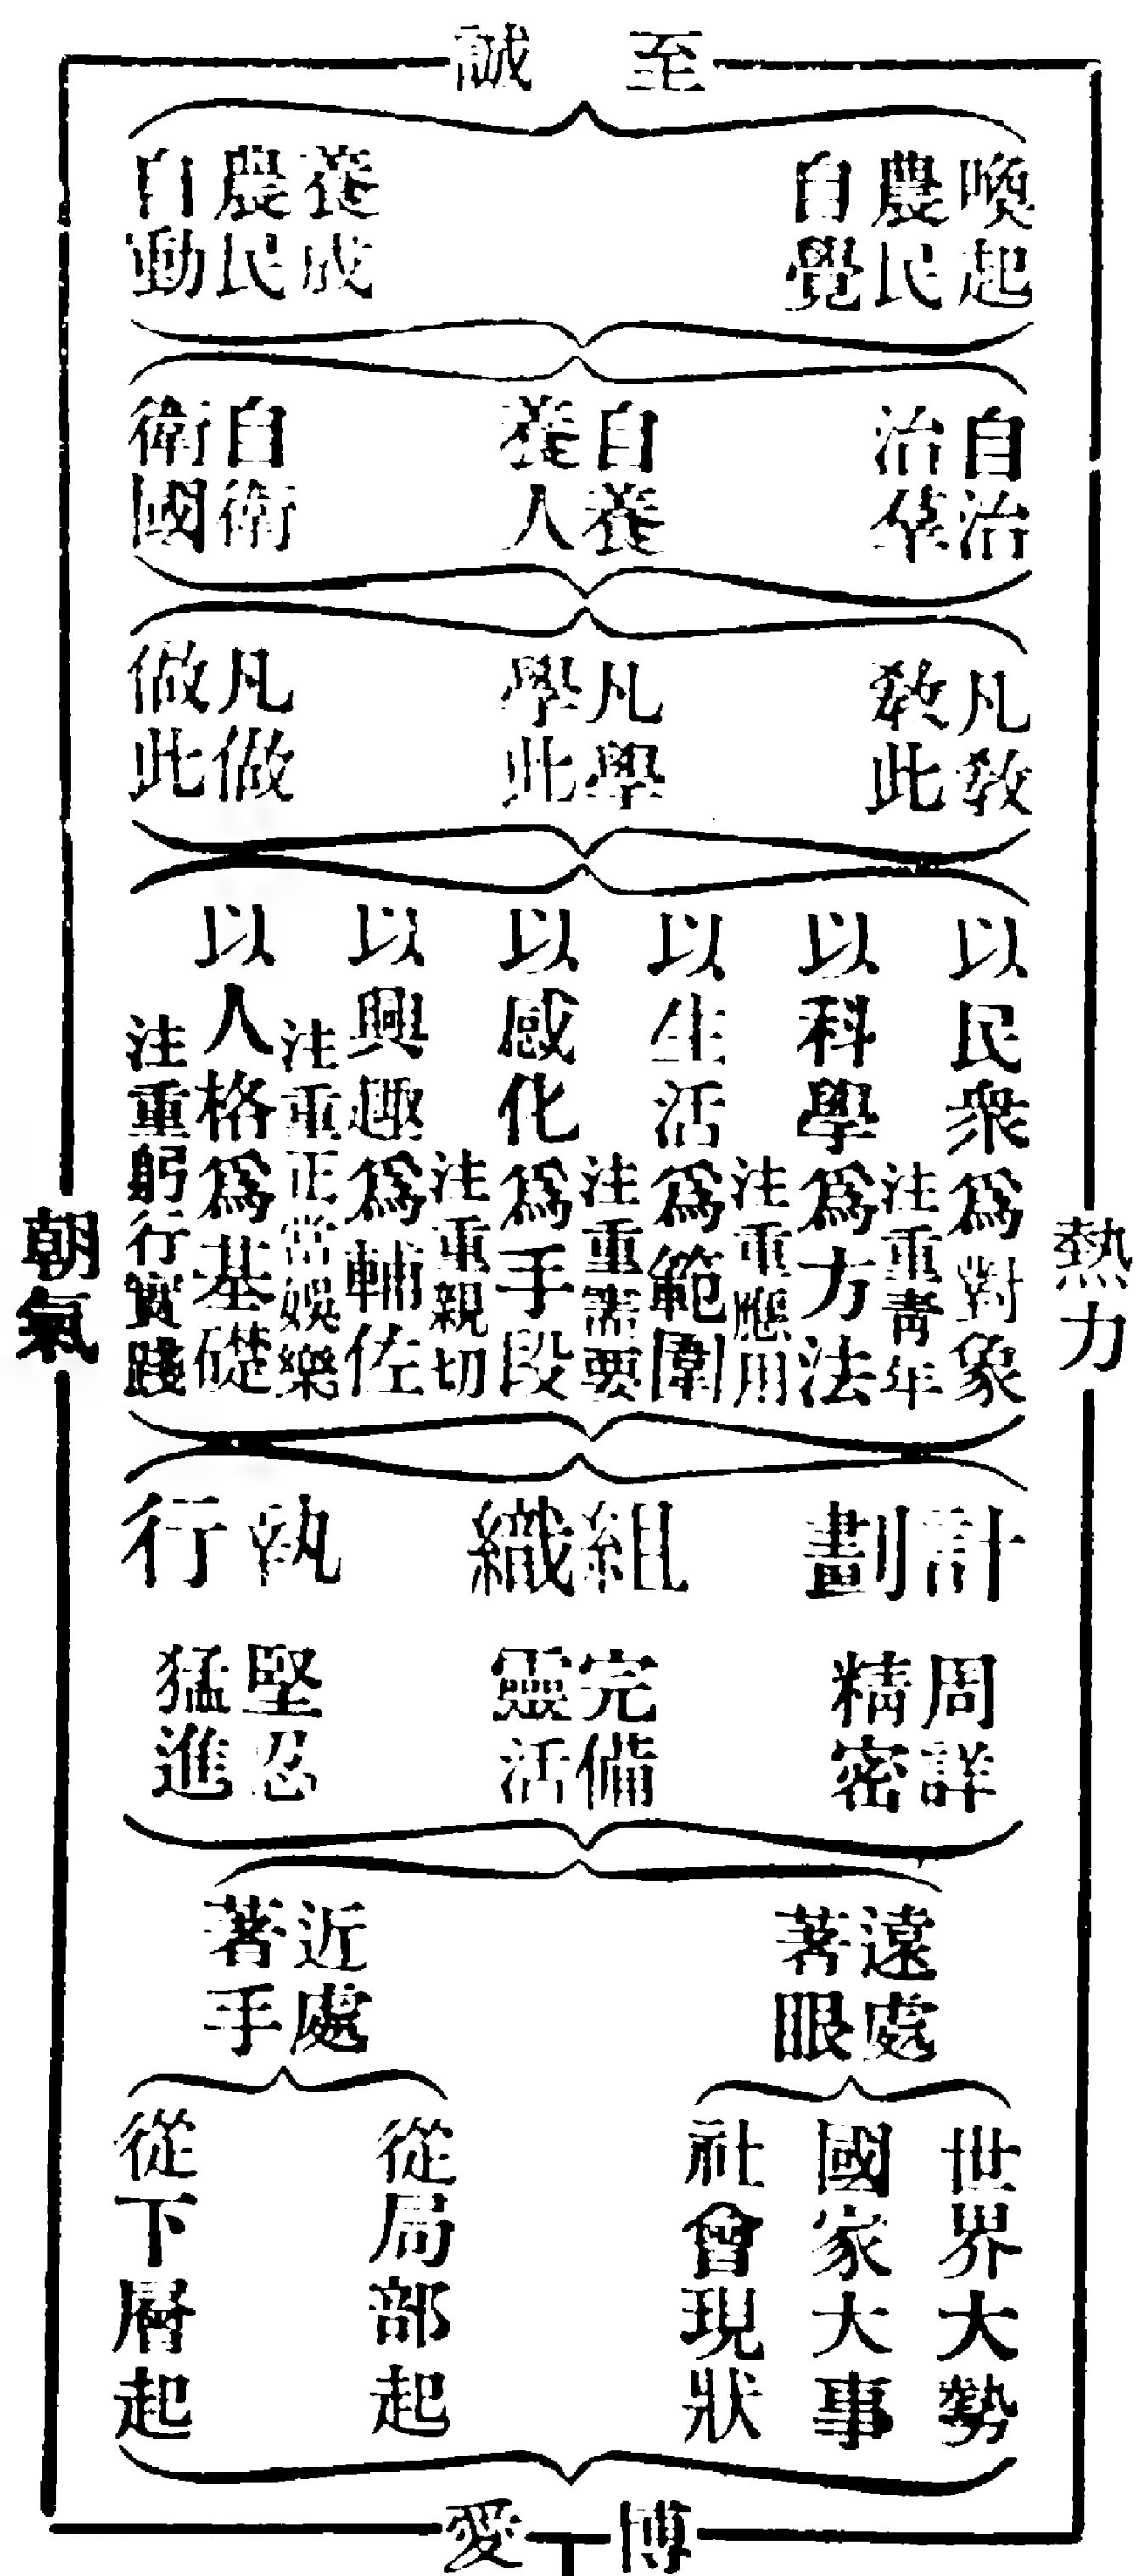 至誠
喚起農民自覺
養成農民自動
自治治羣
自養養人
自衛衛國
凡教教此
凡學學此
凡做做此
以民衆爲對象
注重靑年
以科學爲方法
注重應用
以生活爲範圍
注重需要
以感化爲手段
注重親切
以興趣爲輔佐
注重正當娛樂
以人格爲基礎
注重躬行實踐
計劃
周詳精密
組織
完備靈活
執行
堅忍猛進
遠處著眼
近處著手
世界大勢
國家大事
社會現狀
從局部起
從下層起
熱力
朝氣
博愛